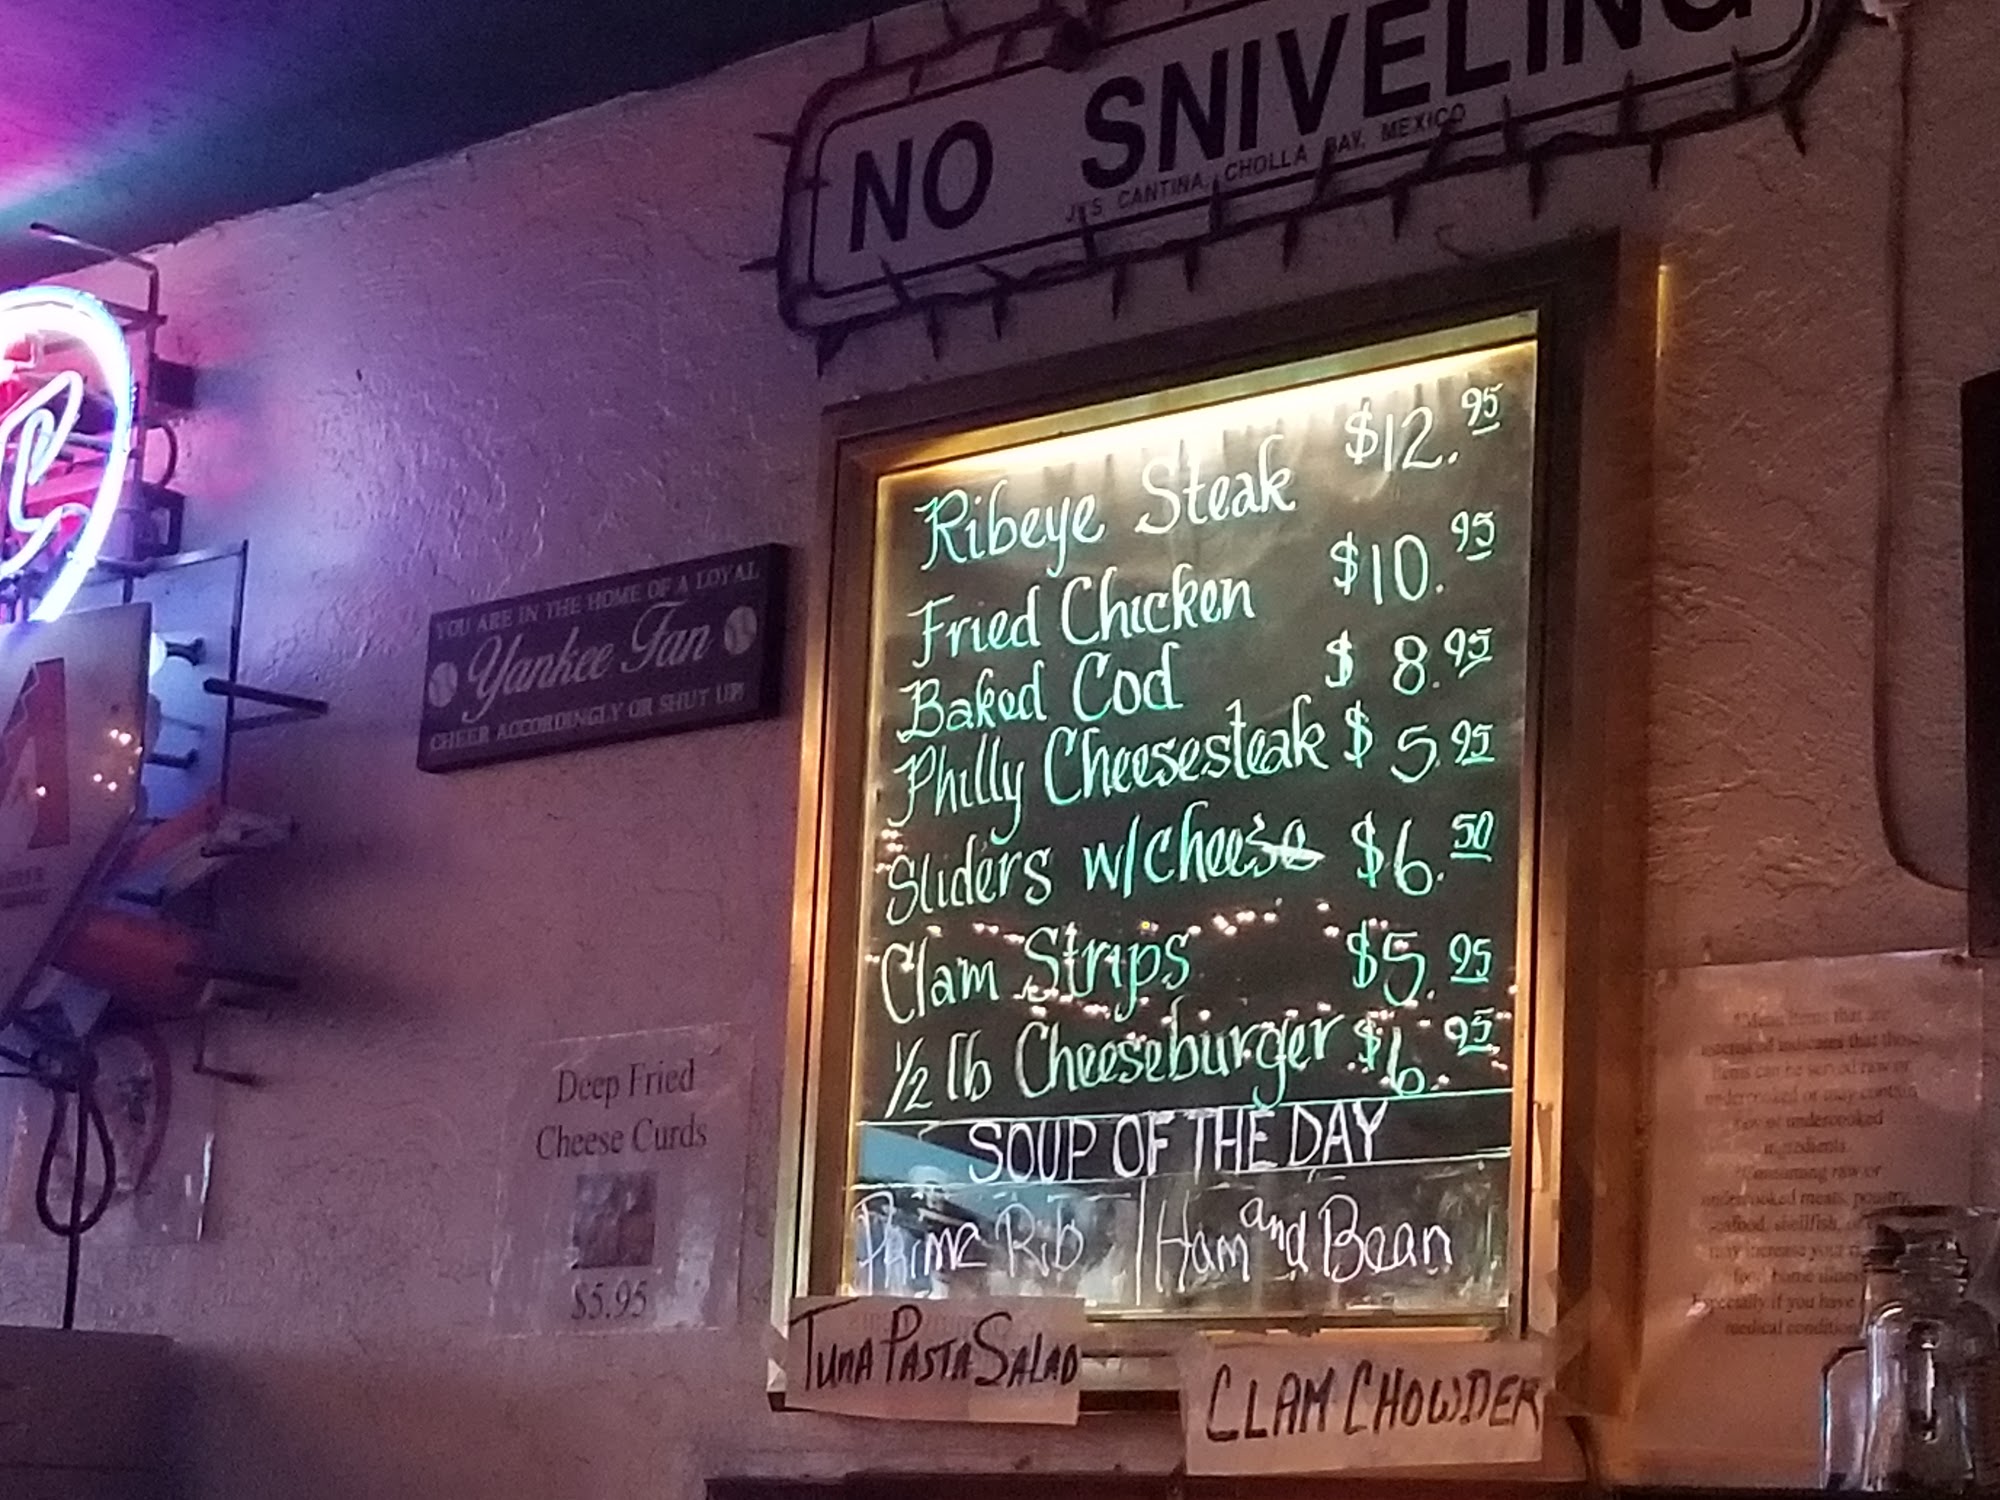 NO SNIVELING
J.J.'S CANTINA, CHOLLA BAY, MEXICO
YOU ARE IN THE HOME OF A LOYAL
Yankee Fan
CHEER ACCORDINGLY OR SHUT UP!
Ribeye Steak $12.95
Fried Chicken $10.95
Baked Cod $8.95
Philly Cheesesteak $5.95
Sliders w/cheese $6.50
Clam Strips $5.95
1/2 lb Cheeseburger $6.95
SOUP OF THE DAY
Prime Rib | Ham and Bean
TUNA PASTA SALAD
CLAM CHOWDER
Deep Fried
Cheese Curds
$5.95
*Menu items that are
asterisked indicates that those
items can be served raw or
undercooked or may contain
raw or undercooked
ingredients.
*Consuming raw or
undercooked meats, poultry,
seafood, shellfish,
may increase your
food borne illness
Especially if you have
medical condition